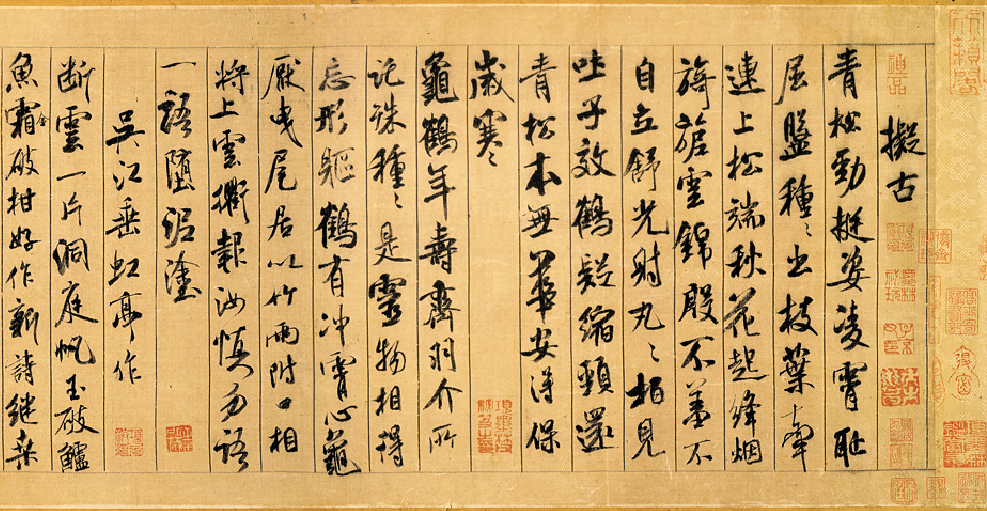 天籟閣
神品
擬古
青松勁挺姿凌霄恥
屈盤種〻出枝葉牽
連上松端秋花起絳烟
旖旎雲錦殷不羞不
自立舒光射丸〻柏見
吐子效鶴疑縮頸還
青松本無華安得保
歲寒〻
龜鶴年壽齊羽介所
託殊種〻是靈物相得
忘形軀鶴有冲霄心龜
厭曳尾居以竹兩附口相
將上雲衢報汝慎勿語
一語墮泥塗
吳江垂虹亭作
断雲一片洞庭帆玉破鱸
魚霜金破柑好作新詩繼桑